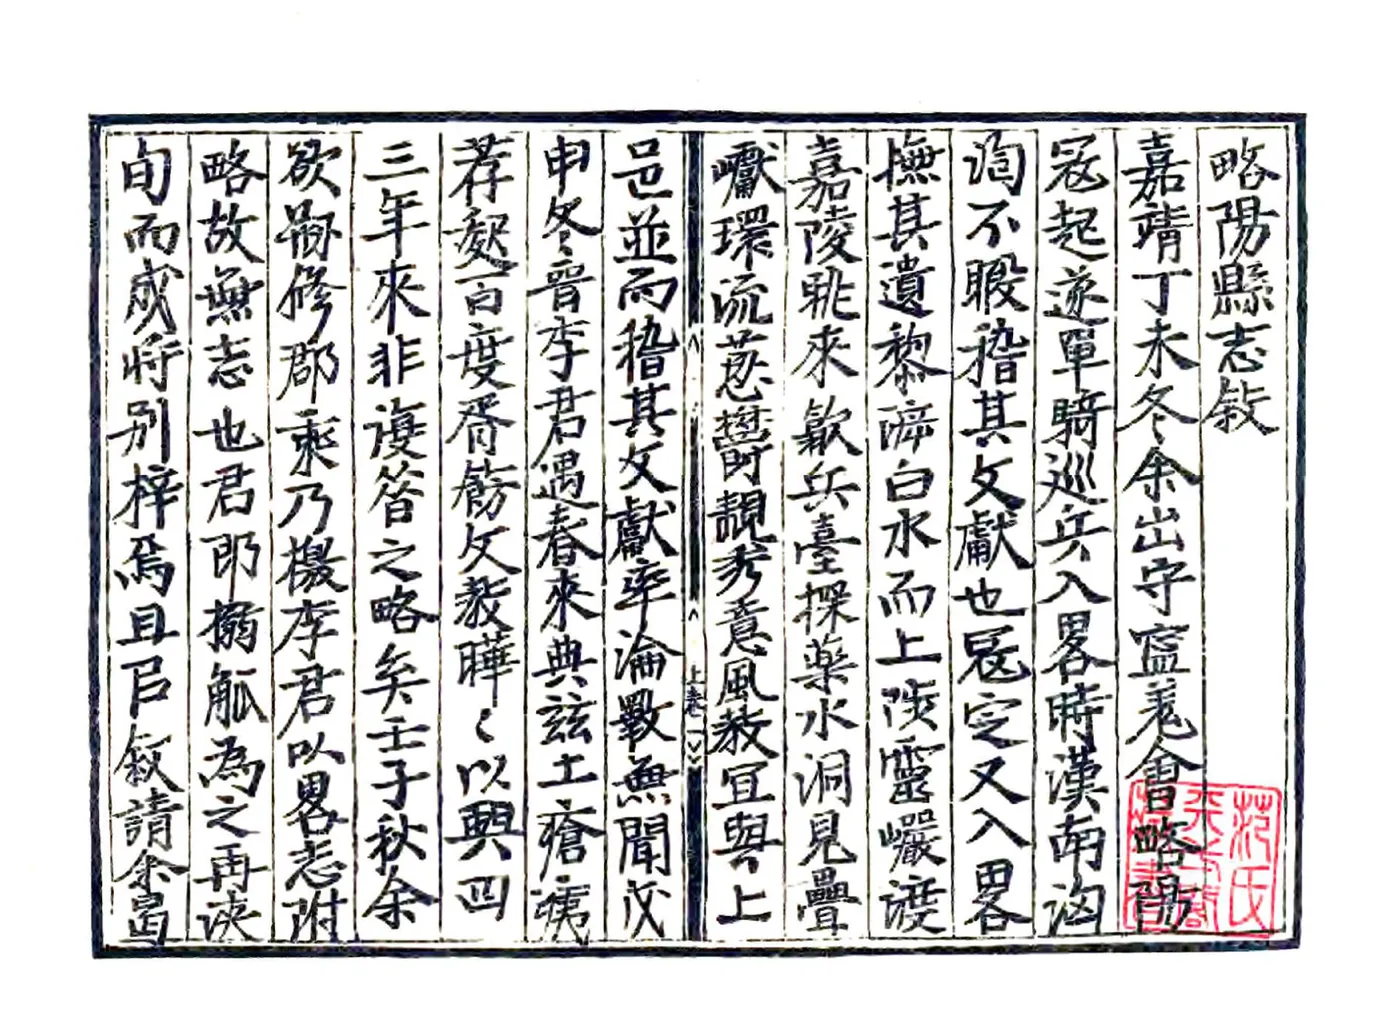 略陽縣志敘
嘉靖丁未冬余出守寍羌會略陽
冦起遂單騎巡兵入畧時漢南洶
洶不暇稽其文獻也冦定又入畧
撫其遺黎濟白水而上陟靈巖渡
嘉陵眺來歙兵臺探藥水洞見疊
巘環流葱欝靚秀意風教宜與上
邑並而稽其文獻率淪斁無聞戊
申冬晋李君遇春來典兹土瘡痍
荐起百度胥飭文教曄〻以興四
三年來非復昝之略矣壬子秋余
欲嗣修郡乘乃檄李君以畧志附
略故無志也君即搦觚為之再浹
旬而成将别梓焉且㠯敘請余曷
上卷
范氏